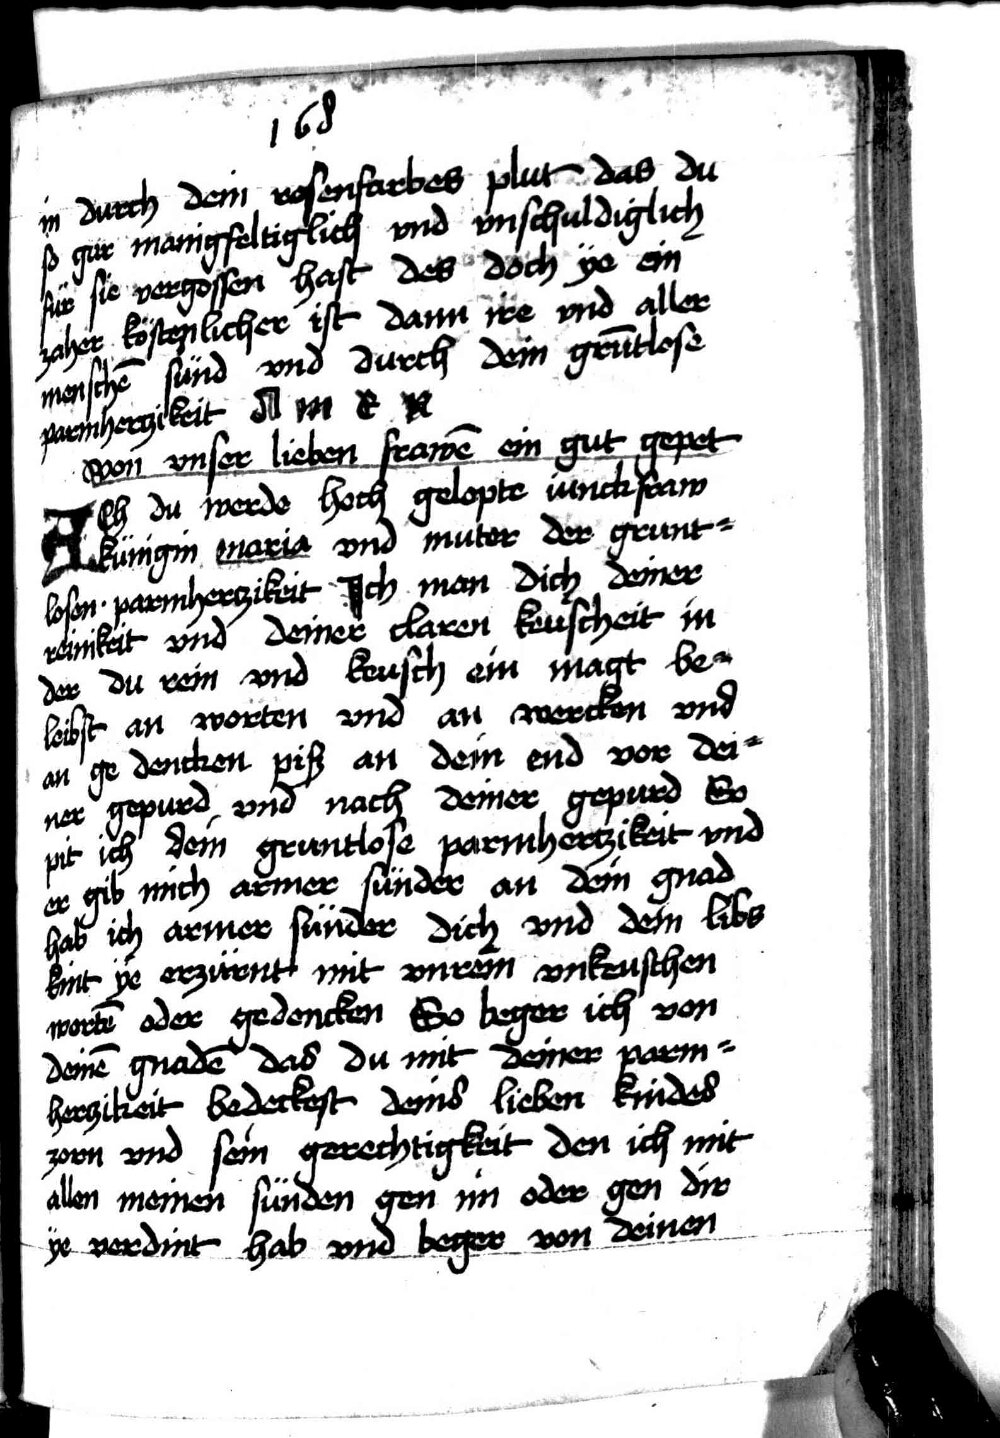 168
in durch dein rosenfarbes plut das du
so gar manigfeltiglich vnd vnschuldiglich
für sie vergossen hast des doch ÿe ein
zaher köstenlicher ist dann ire vnd aller
menschē sünd vnd durch dein grūtlose
parmhertzikeit AMEN
Von vnser lieben frawē ein gut gepet
Ach du werde hoch gelopte iunckfraw
künigin maria vnd muter der grunt=
losen parmhertzikeit Ich man dich deiner
reinikeit vnd deiner claren keuscheit in
der du rein vnd keusch ein magt be=
leibst an worten vnd an wercken vnd
an ge dencken piß an dein end vor dei=
ner gepurd vnd nach deiner gepurd So
pit ich dein gruntlose parmhertzikeit vnd
er gib mich armer sünder an dein gnad
hab ich armer sünder dich vnd dein libs
kint ÿe erzürnt mit vnrein vnkeuschen
wortē oder gedencken So beger ich von
deinē gnadē das du mit deiner parm=
hertzikeit bedeckest deins lieben kindes
zorn vnd sein gerechtigkeit den ich mit
allen meinen sünden gen im oder gen dir
ÿe verdint hab vnd beger von deinen